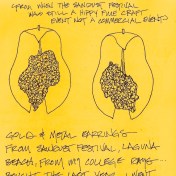 (FROM WHEN THE SAWDUST FESTIVAL
WAS STILL A HIPPY FINE CRAFT
EVENT NOT A COMMERCIAL EVENT)
GOLD & METAL EARRINGS
FROM SAWDUST FESTIVAL, LAGUNA
BEACH, FROM MY COLLEGE DAYS...
BOUGHT THE LAST YEAR I WENT